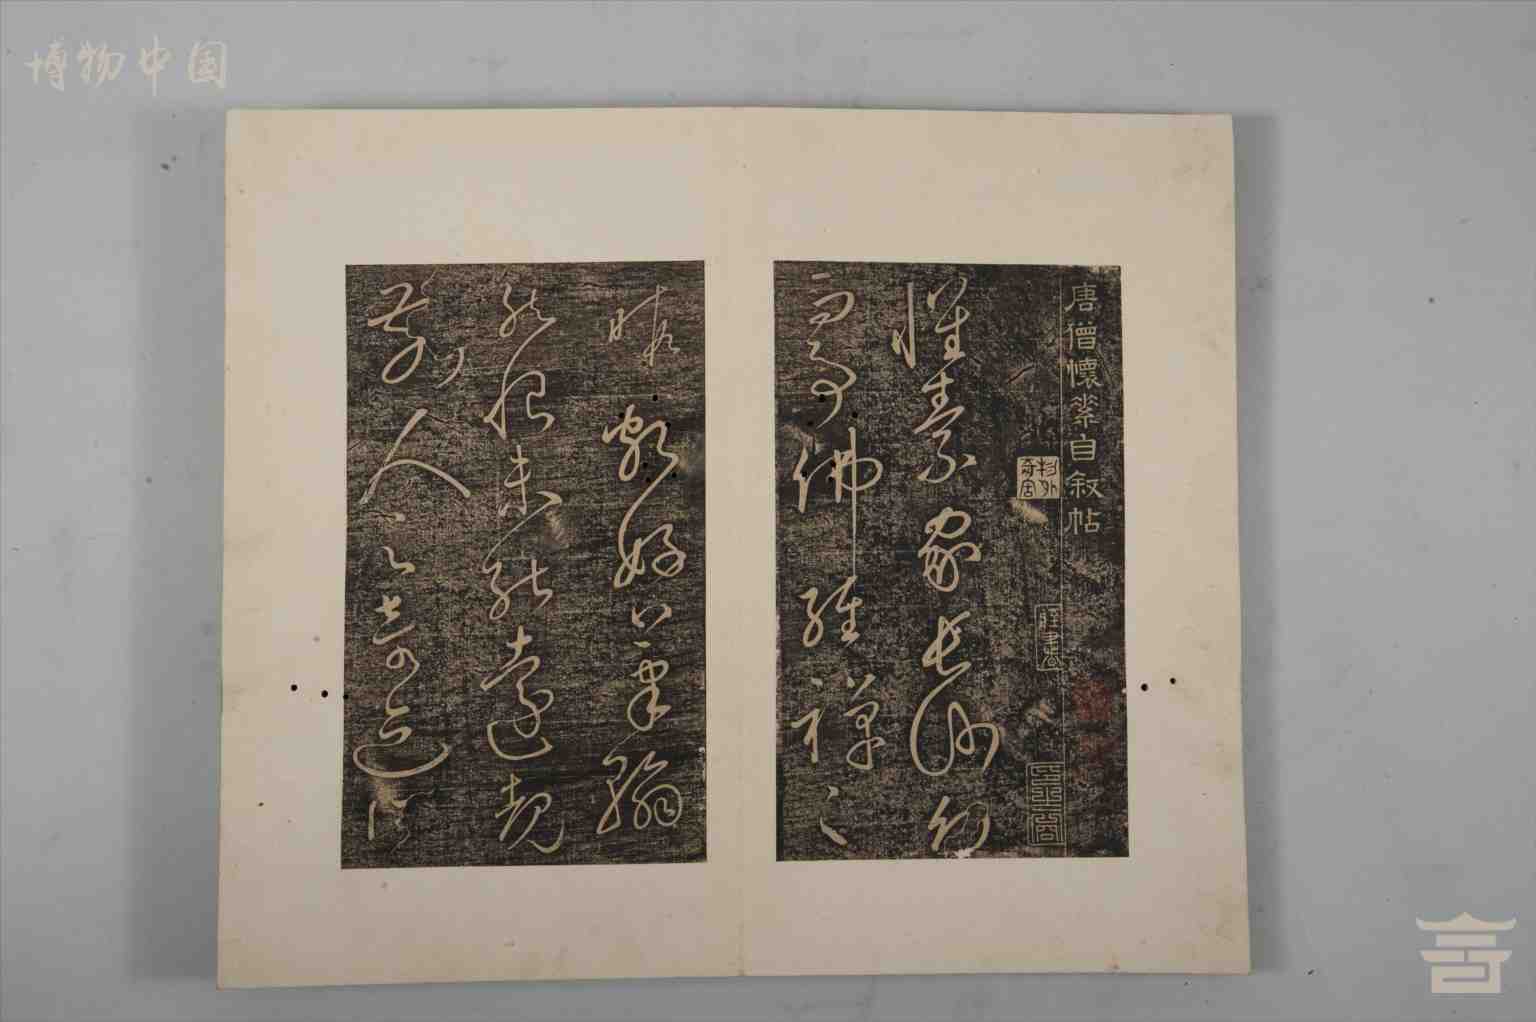 博物中国
唐僧懷素自叙帖
懷素家長沙幼
而事佛經禪之
暇頗好筆翰
然恨未能遠覩
前人之奇迹所